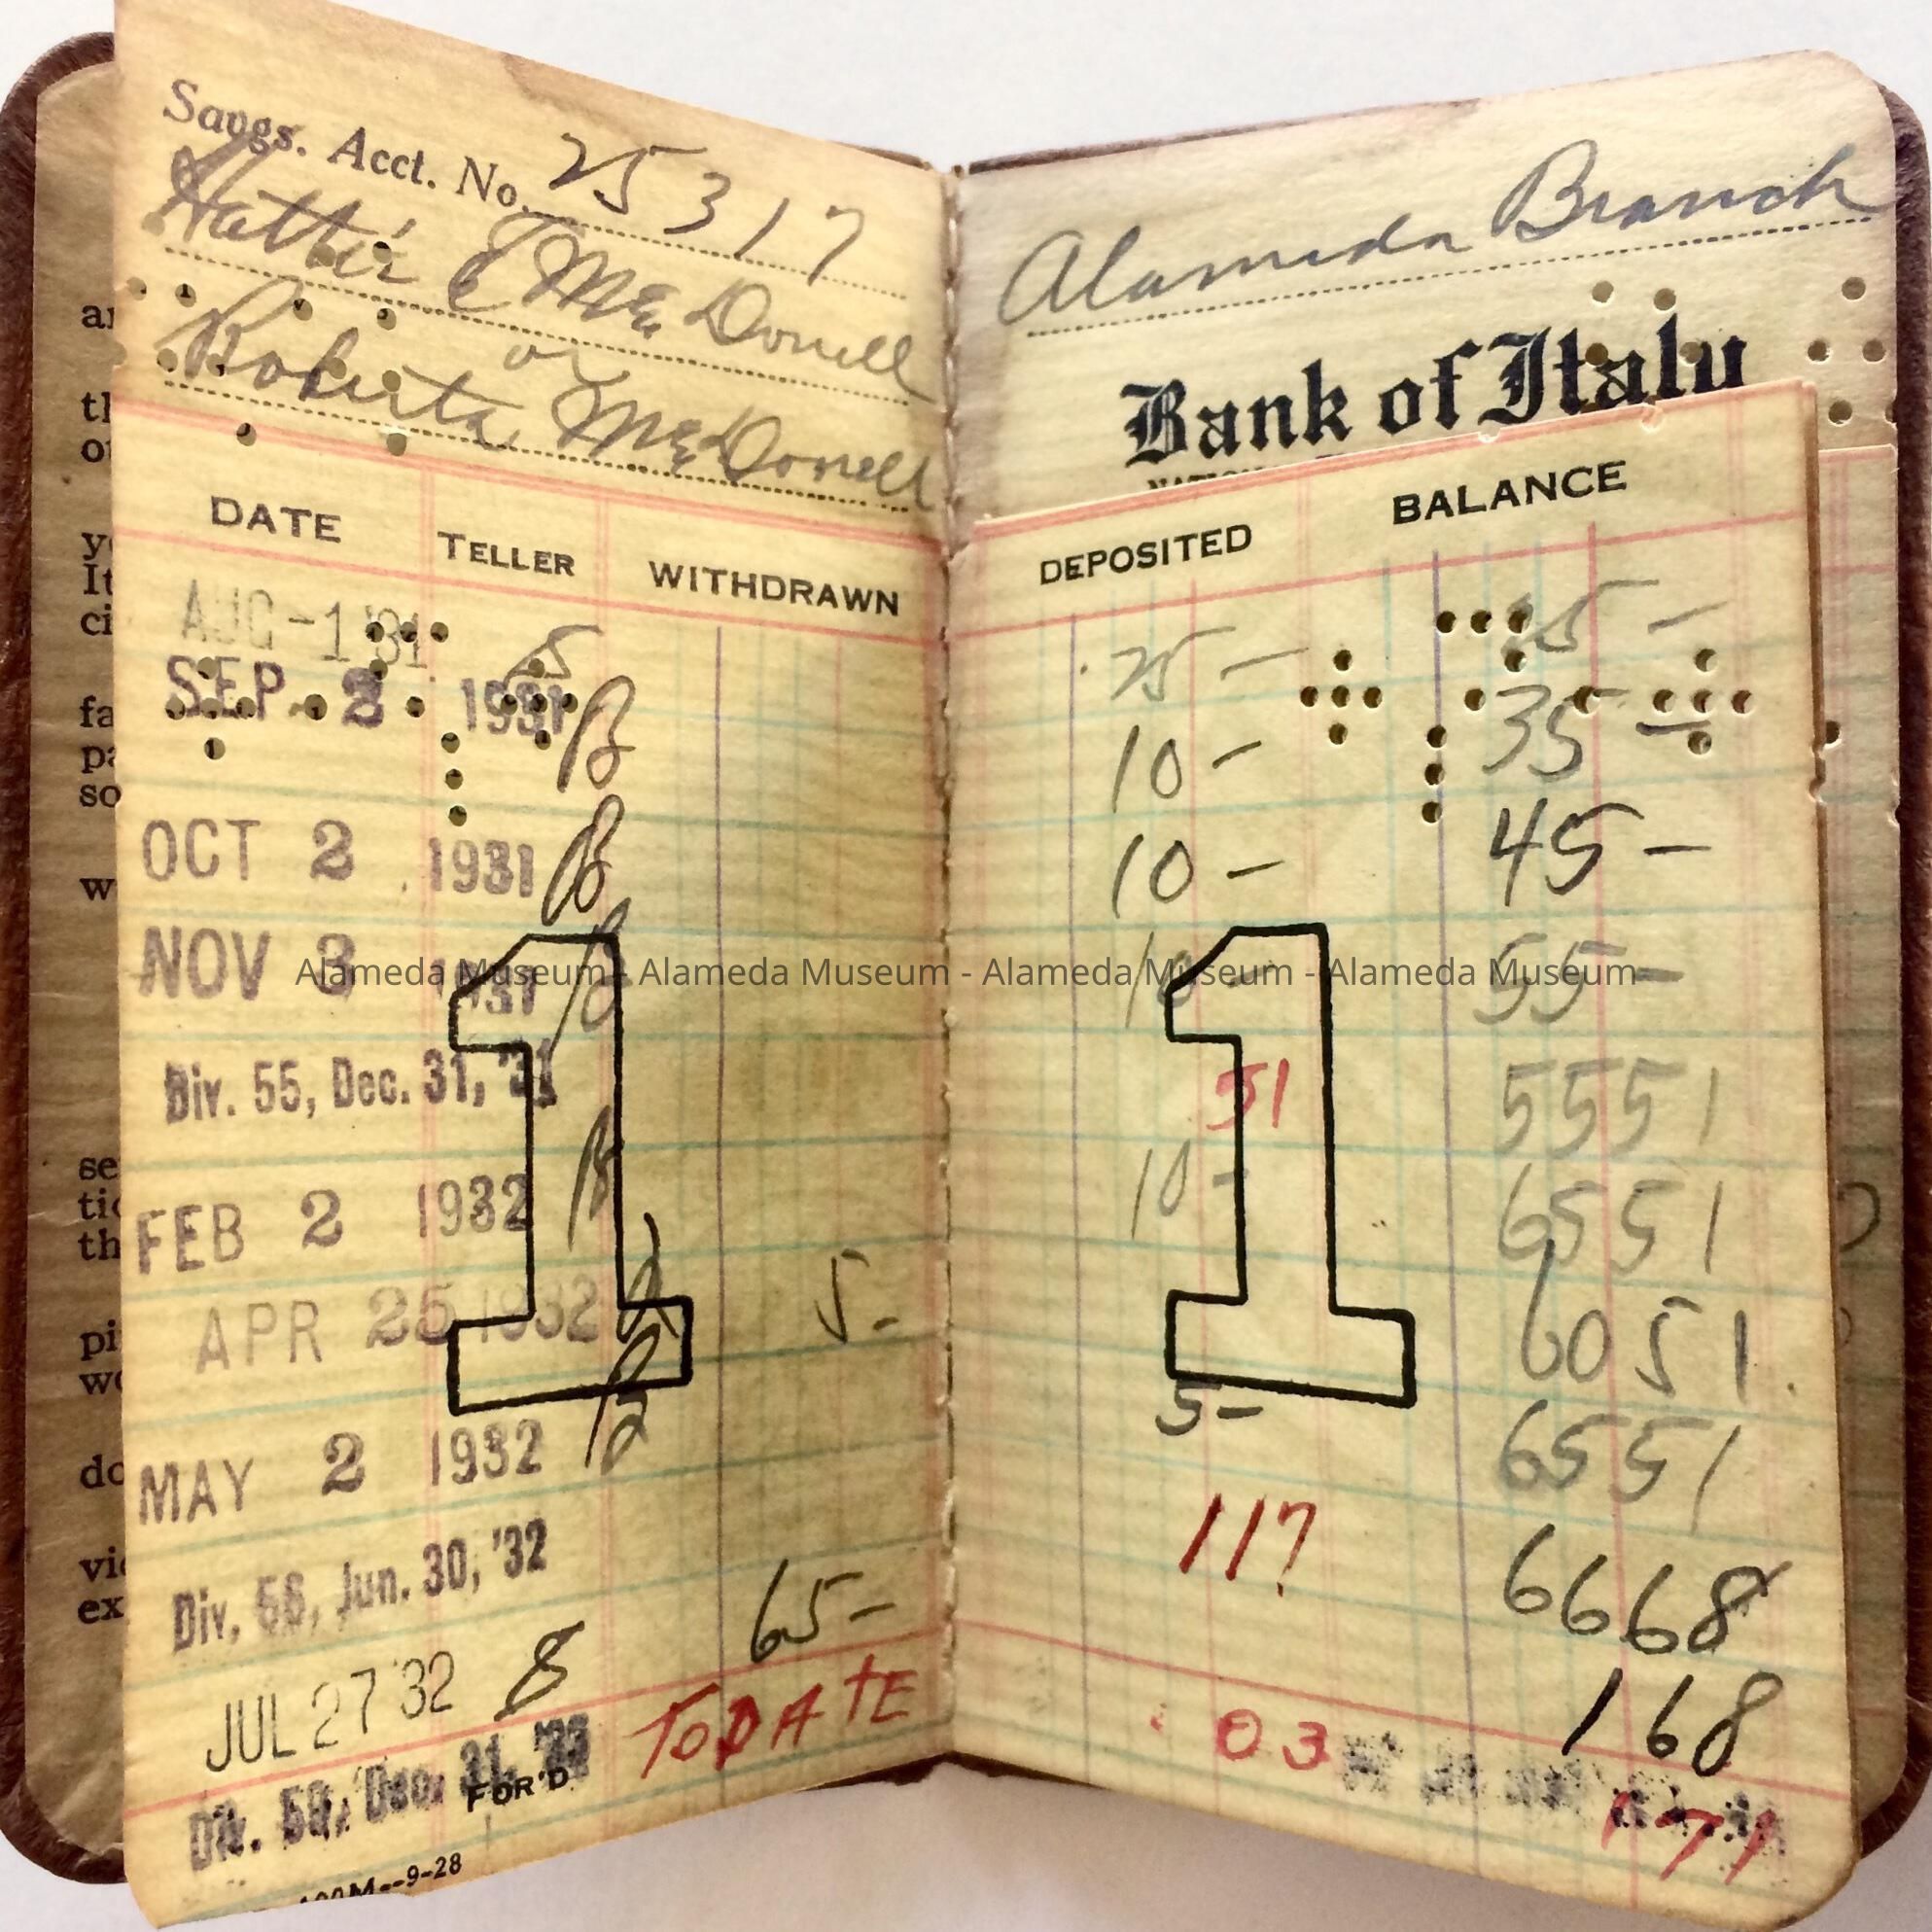 Savgs. Acct. No. 25317
Hattie E McDonell
or
Roberta McDonell
DATE TELLER WITHDRAWN
AUG -1 '31
SEP 2 1931 B
OCT 2 1931 B
NOV 3 1931 B
Div. 55, Dec. 31, '31
FEB 2 1932 B
APR 25 1932 5-
MAY 2 1932
Div. 56, Jun. 30, '32
JUL 27 '32 8 65-
TO DATE
Div. 59, Dec. 31, '33
FOR'D.
--9-28
Alameda Branch
Bank of Italy
DEPOSITED BALANCE
25 - 25 -
10 - 35 -
10 - 45 -
10 - 55 -
51 5551
10 - 6551
6051
5- 6551
117 6668
168
03 171
1 1
Alameda Museum - Alameda Museum - Alameda Museum - Alameda Museum